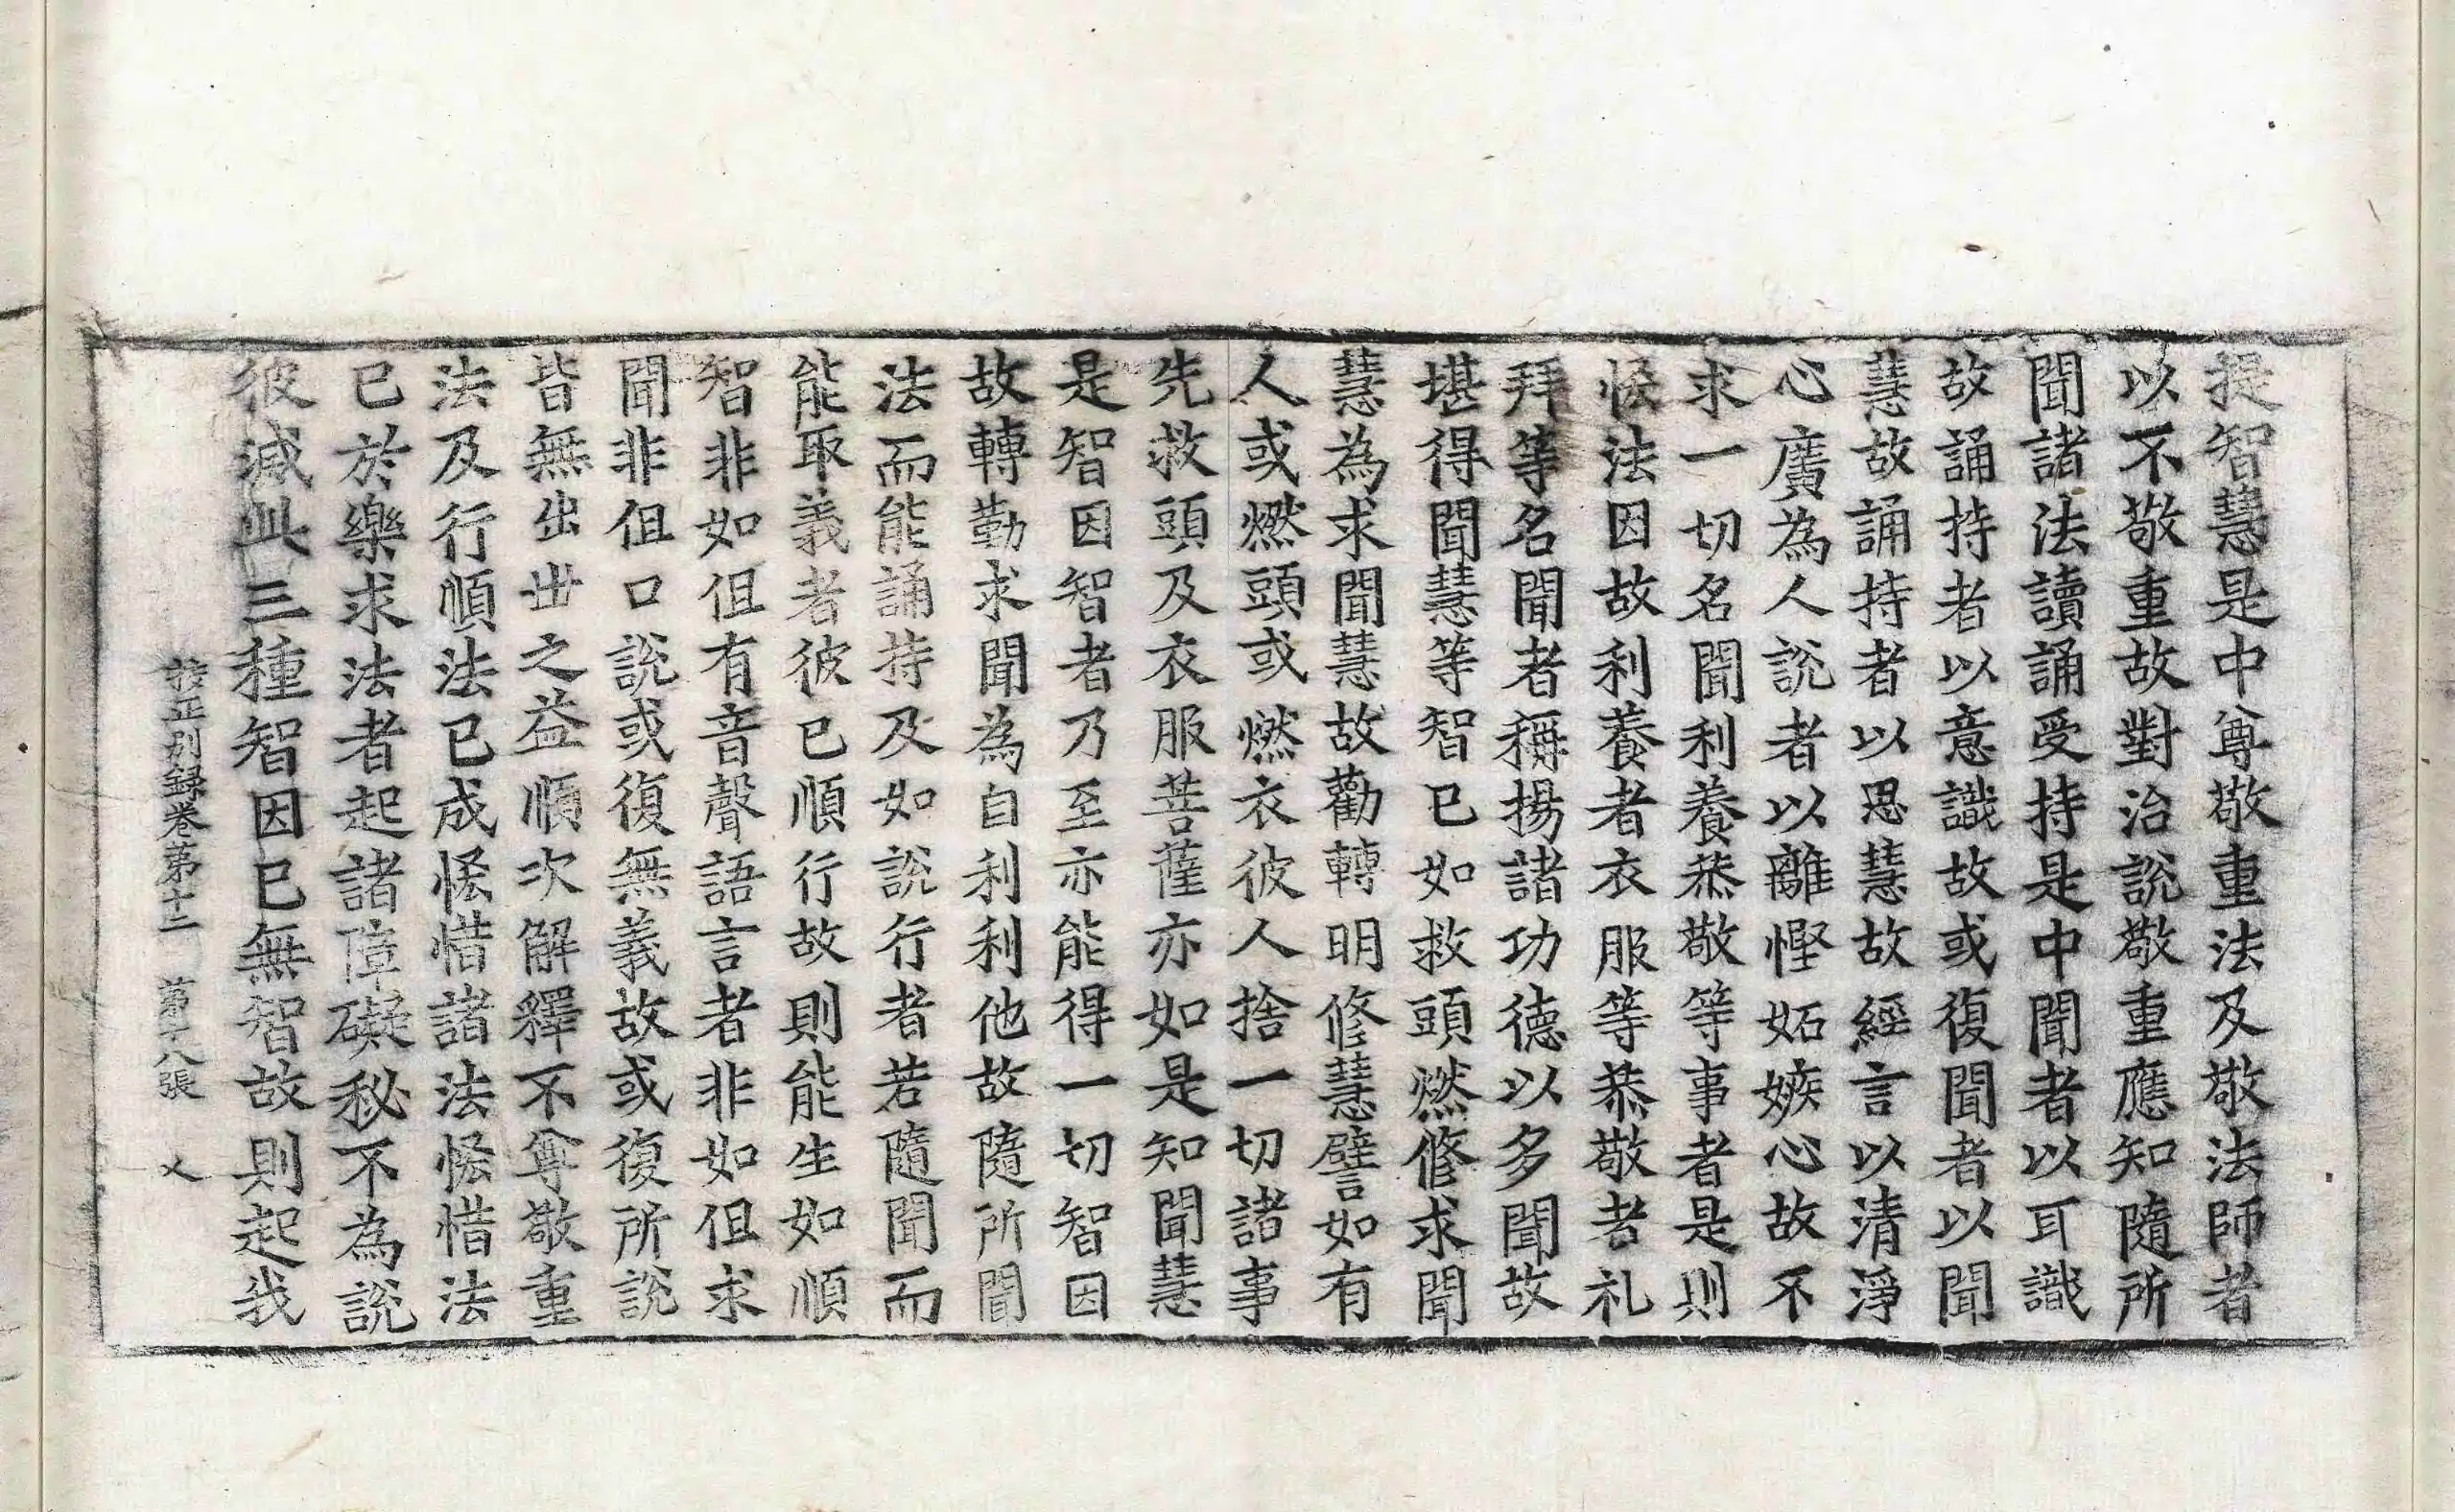 提智慧是中尊敬重法及敬法師者
以不敬重故對治說敬重應知隨所
聞諸法讀誦受持是中聞者以耳識
故誦持者以意識故或復聞者以聞
慧故誦持者以思慧故經言以清淨
心廣為人說者以離慳妬嫉心故不
求一切名聞利養恭敬等事者是則
恡法因故利養者衣服等恭敬者礼
拜等名聞者稱揚諸功德以多聞故
堪得聞慧等智已如救頭燃修求聞
慧為求聞慧故勸轉明修慧譬如有
人或燃頭或燃衣彼人捨一切諸事
先救頭及衣服菩薩亦如是知聞慧
是智因智者乃至亦能得一切智因
故轉勤求聞為自利利他故隨所聞
法而能誦持及如說行者若隨聞而
能取義者彼已順行故則能生如順
智非如但有音聲語言者非如但求
聞非但口說或復無義故或復所說
皆無出世之益順次解釋不尊敬重
法及行順法已成恡惜諸法恡惜法
已於樂求法者起諸障礙秘不為說
彼滅此三種智因已無智故則起我
校正別録卷第十二 第十八張 乂